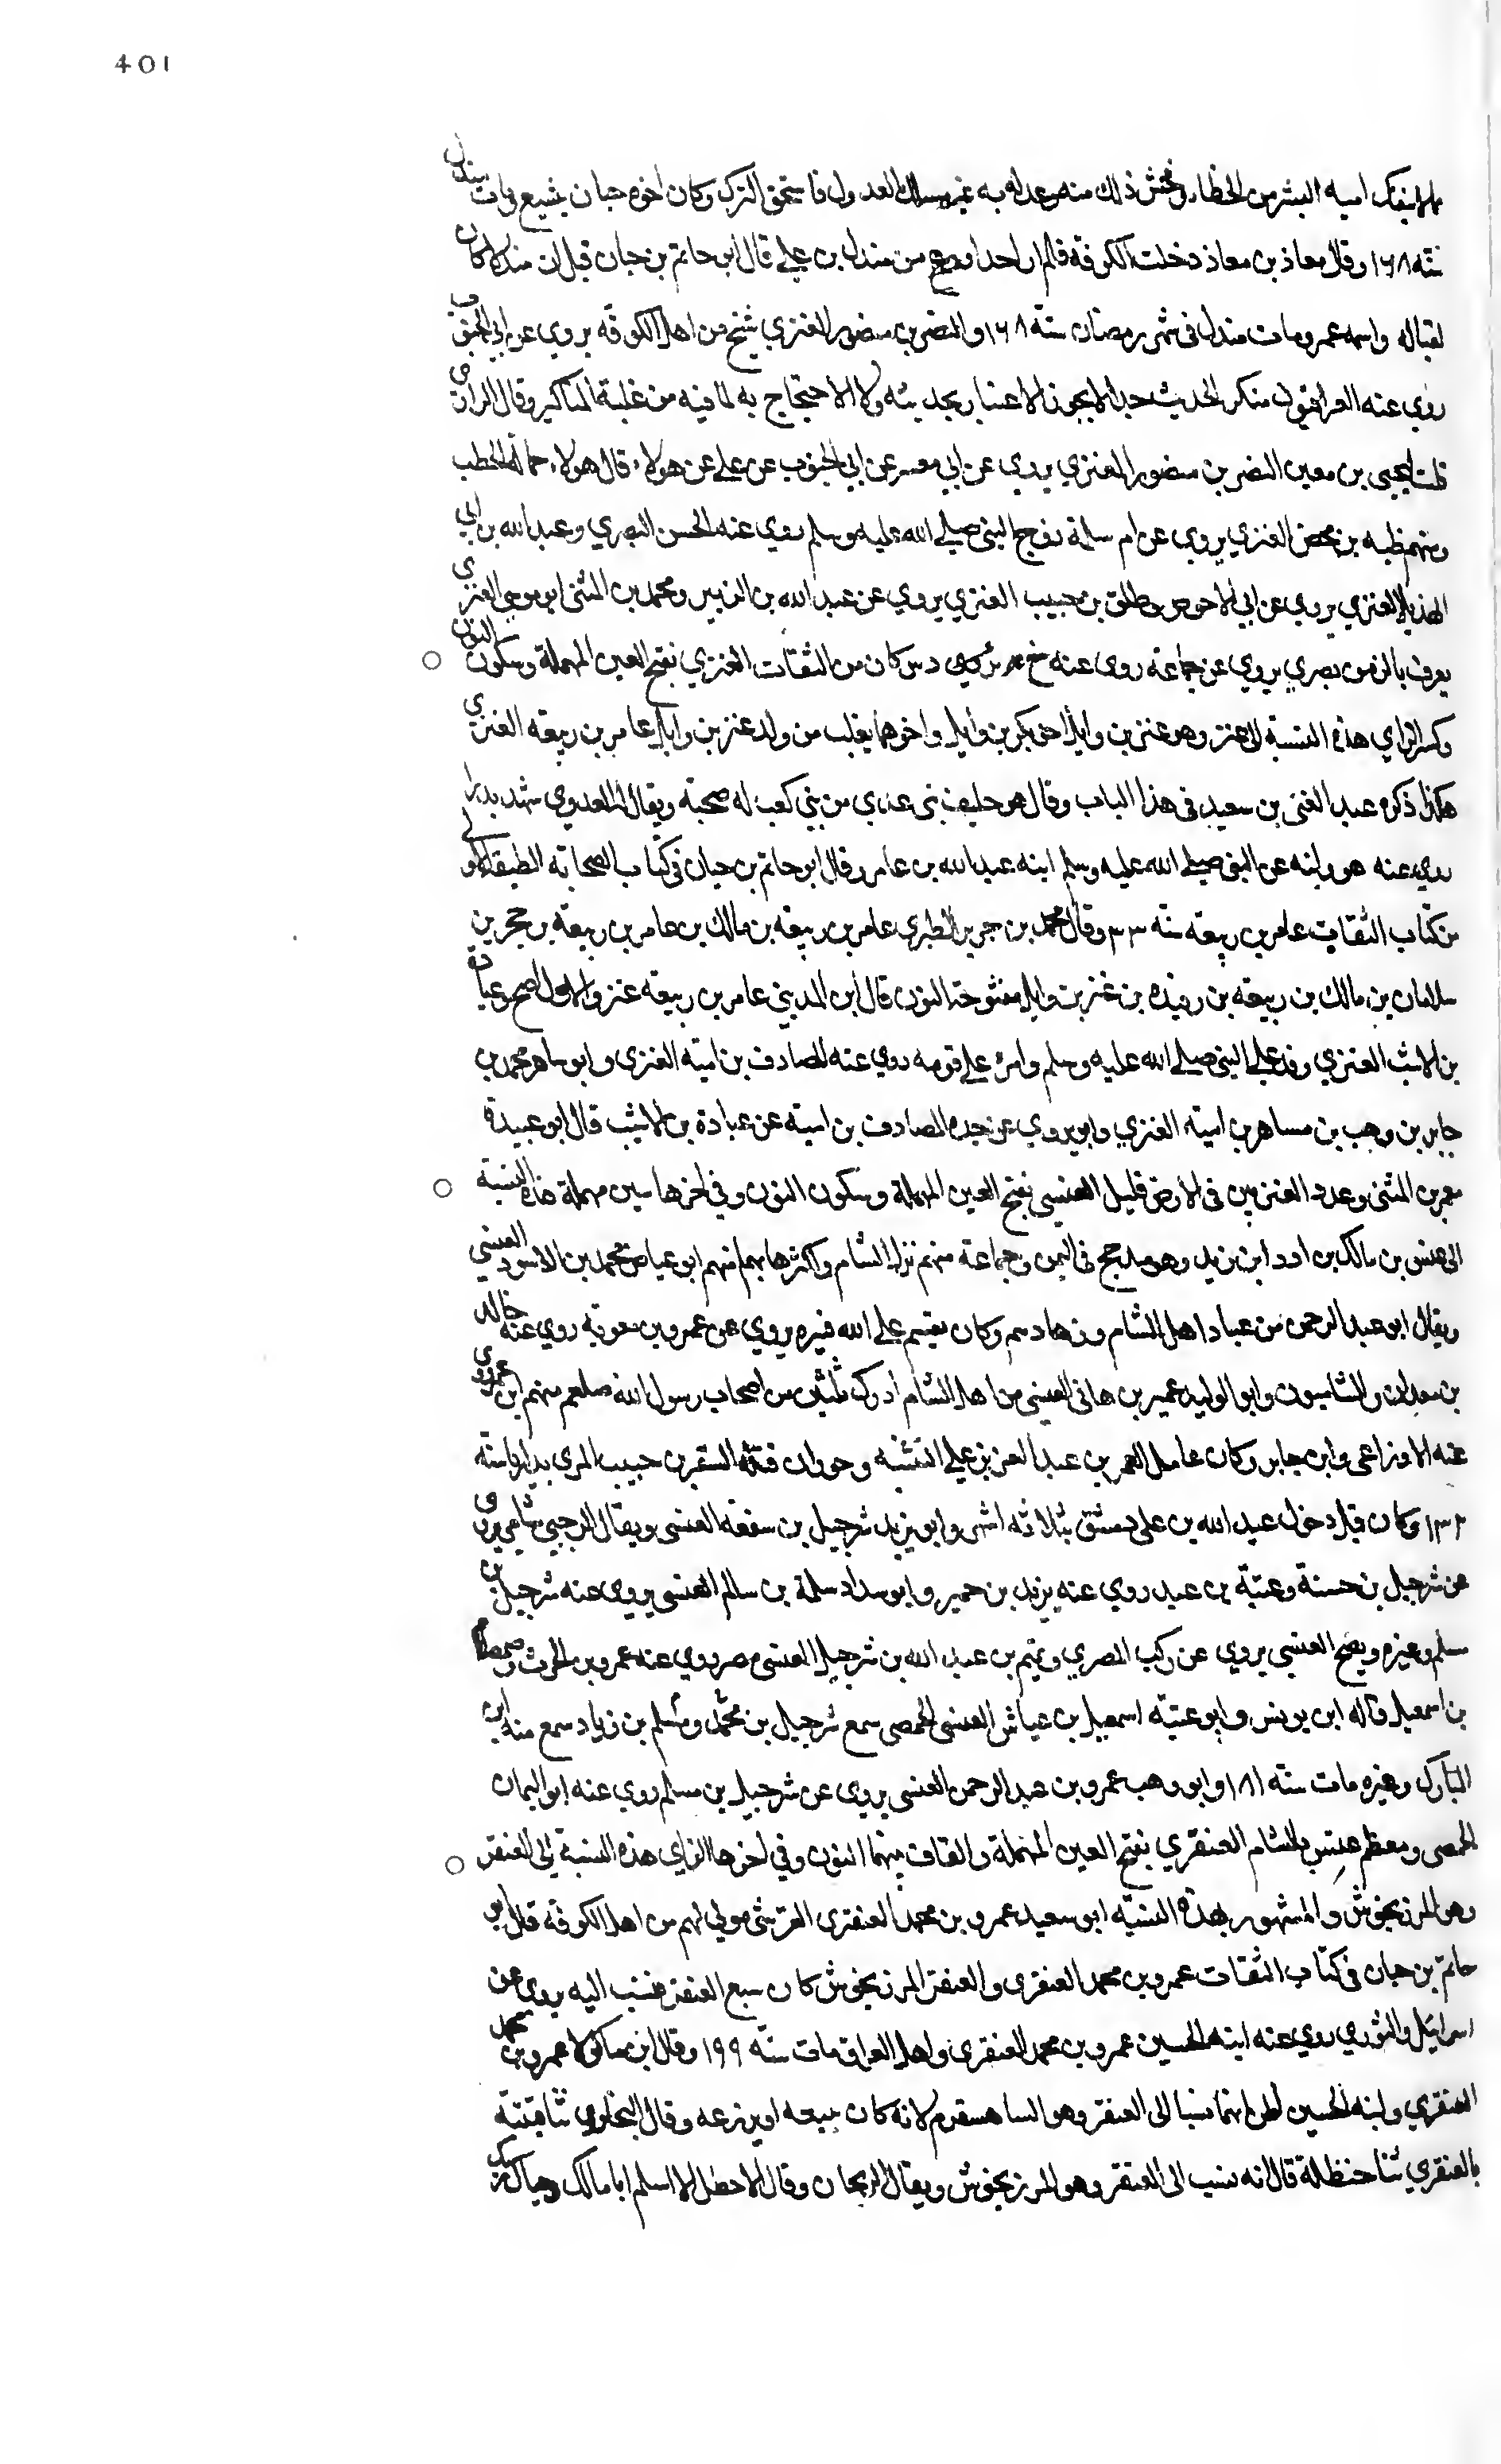 401
مما لا ينفك امنه البشر من الخطا وفحش ذلك منه وعدل به غير مسلك العدول فاستحق الترك وكان اخوه حبان يتشيع ومات مندل
سنة ١٦٨ وقال معاذ بن معاذ دخلت الكوفة فلم ار احدا اورع من مندل بن علي قال ابن حاتم بن حبان قيل ان مندلا كان
لقبا له واسمه عمرو مات مندل في شهر رمضان سنة ١٦٨ والنضر بن منصور العنزي شيخ من اهل الكوفة يروي عن ابي الجنوب
روي عنه العراقيون منكر الحديث جدا لا يجوز الاعتبار بحديثه ولا الاحتجاج به لما فيه من غلبة المناكير وقال الدارمي
قلت ليحيى بن معين النضر بن منصور العنزي يروي عن ابي معسر عن ابي الجنوب عن علي عن هولاء قال هولاء حمالة الحطب
ومنهم ظبه بن محصن العنزي يروي عن ام سلمة زوج النبي صلى الله عليه وسلم روي عنه الحسن البصري وعبد الله بن ابي
الهذيل العنزي يروي عن ابي الاحوص وطلق بن حبيب العنزي يروي عن عبد الله بن الزبير ومحمد بن المثنى ابو موسى العنزي
يعرف بالزمن بصري يروي عن جماعة روى عنه خ م د س كان من الثقات العنزي بفتح العين المهملة وسكون النون
وكسر الزاي هذه النسبة الى عنز وهو عنز بن وايل اخو بكر بن وايل واخوهما تغلب من ولد عنز بن وايل عامر بن ربيعة العنزي
هكذا ذكره عبد الغني بن سعيد في هذا الباب وقال هو حليف بني عدي من بني كعب له صحبة ويقال له العدوي شهد بدرا
روي عنه هو وابنه عن النبي صلى الله عليه وسلم ابنه عبد الله بن عامر وقال ابو حاتم بن حبان في كتاب الصحابة الطبقة الاولى
من كتاب الثقات عامر بن ربيعة سنة ٣٣ وقال محمد بن جرير الطبري عامر بن ربيعة بن مالك بن عامر بن ربيعة بن حجر بن
سلامان بن مالك بن ربيعة بن رفيدة بن عنز بن وايل مفتوحة النون قال ابن المديني عامر بن ربيعة عنز والاول اصح وعبادة
بن الاشيب العنزي وفد على النبي صلى الله عليه وسلم وامره على قومه روي عنه المصادف بن امية العنزي وابو ساهر محمد بن
جابر بن وهب بن مساهر بن امية العنزي وابو يروي عن جده المصادف بن امية عن عبادة بن الاشيب قال ابو عبيدة
معمر بن المثنى وعدد العنزيين في الارض قليل العنسي بفتح العين المهملة وسكون النون وفي اخرها سين مهملة هذه النسبة
الى عنس بن مالك بن ادد ابن زيد وهو مذحج في اليمن وجماعة منهم نزل الشام واكثرها بها منهم ابو عياض محمد بن الاسود العنسي
ويقال ابو عبد الرحمن من عباد اهل الشام وزهادهم وكان يقسم على الله فيبره يروي عن عمر وبن معوية روي عنه خالد
بن معدان والشاميون وابو الوليد عمير بن هاني العنسي من اهل الشام ادرك ثلثين من اصحاب رسول الله صلعم منهم ابن عمر روى
عنه الاوزاعي وابن جابر وكان عامل العمر بن عبد العزيز على البثنية وحوران قتله السقر بن حبيب المري بداريا سنة
١٣٢ وكان قبل دخول عبد الله بن علي دمشق بثلاثة اشهر وابو يزيد شرحبيل بن سفعة العنسي ويقال الرحبي شامي يروي
عن شرحبيل بن حسنة وعتبة بن عبد روي عنه يزيد بن حمير وابو سداد سلمة بن سالم العنسي يروي عنه شرحبيل بن
سلم وغيره ويصح العنسي يروي عن ركب المصري وتميم بن عبد الله بن شرحبيل العنسي مصر روي عنه عمرو بن الحرث وضمام
بن اسمعيل قاله ابن يونس وابو عتبة اسمعيل بن عياش العنسي الحمصي سمع شرحبيل بن محمد ومسلم بن زياد سمع منه ابن
المبارك وغيره مات سنة ١٨١ وابو وهب عمرو بن عبد الرحمن العنسي يروي عن شرحبيل بن مسلم روي عنه ابو اليمان
الحمصي ومعظم عنس بالشام العنقزي بفتح العين المهملة والقاف بينهما النون وفي اخرها الزاي هذه النسبة الى العنقز
وهو المرزنجوش والمشهور بهذه النسبة ابو سعيد عمرو بن محمد العنقزي القرشي مولى لهم من اهل الكوفة قال ابو
حاتم بن حبان في كتاب الثقات عمرو بن محمد العنقزي والعنقز المرزنجوش كان سبع العنقز فنسب اليه يروي عن
اسرائيل والثوري روي عنه ابنه الحسين عمرو بن محمد العنقزي واهل العراق مات سنة ١٩٩ وقال ابن ماكولا عمرو بن محمد
العنقزي وابنه الحسين اظن انهما نسبا الى العنقز وهو الساهسفرم لانه كان يبيعه او يزرعه وقال البخاري ثنا قتيبة
بالعنقزي ثنا حنظلة قال انه نسب الى العنقز وهو المرزنجوش ويقال الريحان وقال الاخطل الا اسلم ابا مالك وحياك ربك